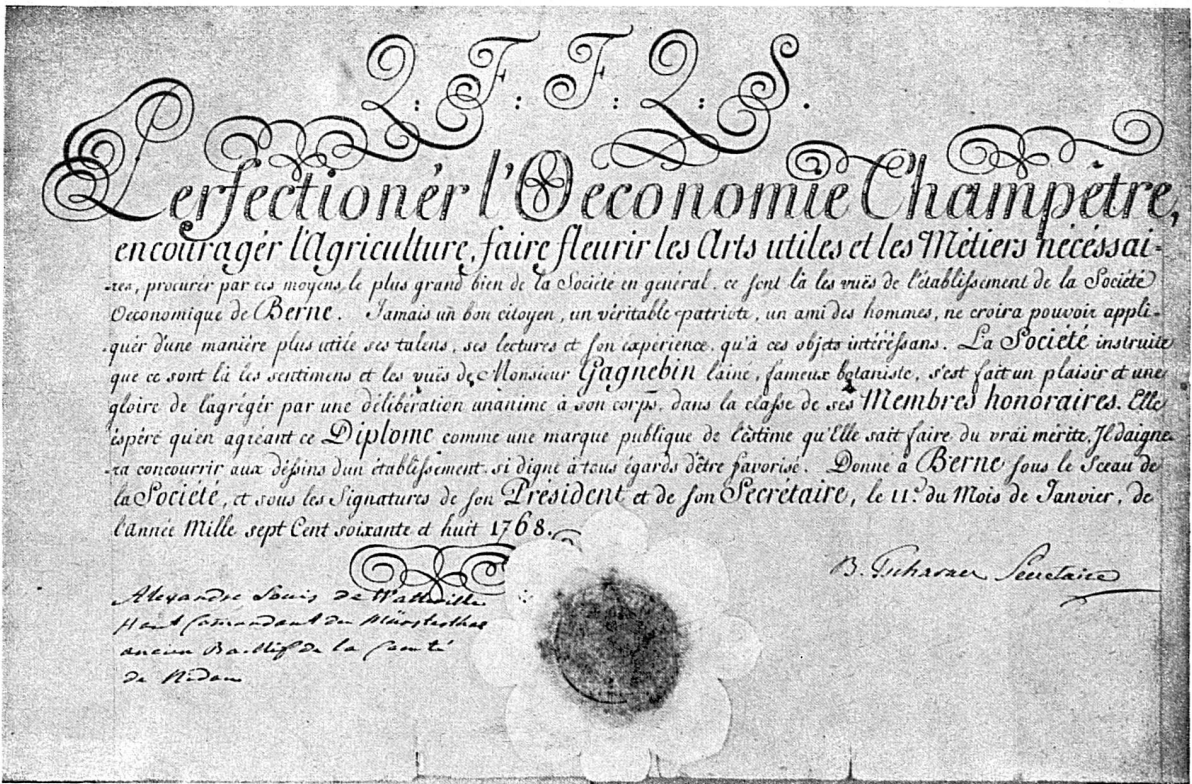 Q: F: F: Q: S.
Perfectionér l'Oeconomie Champêtre,
encouragér l'Agriculture, faire fleurir les Arts utiles et les Métiers nécéssai-
-res, procurér par ces moyens, le plus grand bien de la Societé en general, ce sont là les vuës de l'établissement de la Société
Oeconomique de Berne. Jamais un bon citoyen, un véritable patriote, un ami des hommes, ne croira pouvoir appli-
-quér d'une manière plus utile ses talens, ses lectures et son expérience, qu'à ces objets intéréssans. La Société instruite
que ce sont là les sentimens et les vuës de Monsieur Gagnebin l'ainé, fameux botaniste, s'est fait un plaisir et une
gloire de l'agrégér par une délibération unanime à son corps, dans la classe de ses Membres honoraires. Elle
espére qu'en agréant ce Diplome comme une marque publique de l'éstime qu'Elle sait faire du vrai mérite, Il daigne-
-ra concourrir aux déssins d'un établissement si digne à tous égards d'être favorisé. Donné à Berne sous le Sceau de
la Société, et sous les Signatures de son Président et de son Secrétaire, le 11.e du Mois de Janvier, de
l'année Mille sept Cent soixante et huit 1768.
B. Tscharner Secretaire
Alexandre Louis de Watteville
Haut Comandant du Münsterthal
ancien Baillif de la Comté
de Nidau